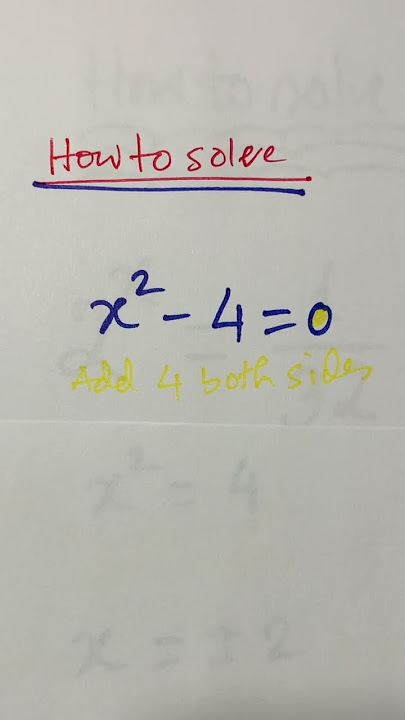 How to solve
x² - 4 = 0
Add 4 both sides
x² = 4
x = ± 2